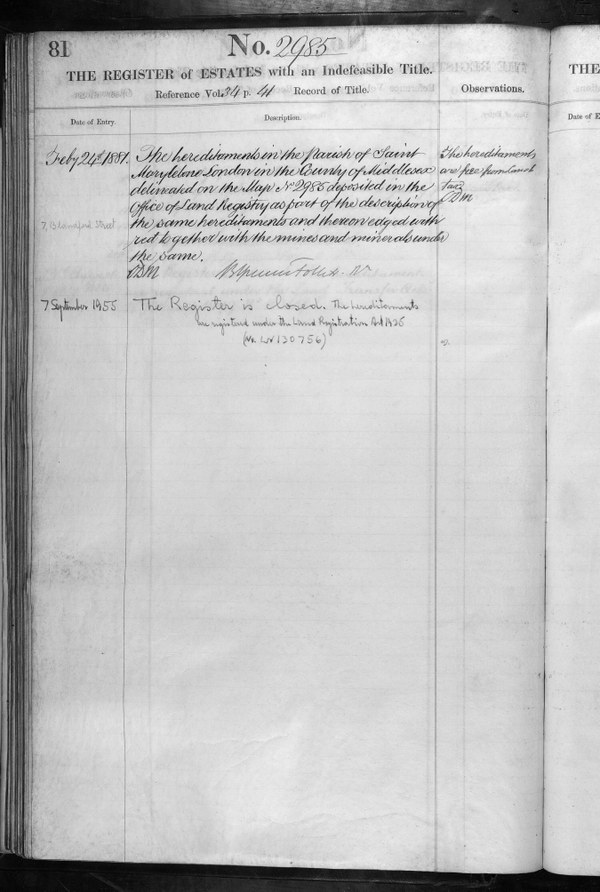 81
No. 2985
THE REGISTER of ESTATES with an Indefeasible Title.
Reference Vol. 34 p. 41 Record of Title.
Observations.
Date of Entry.
Description.
Feby 24th 1881.
The hereditaments in the Parish of Saint
Marylebone London in the County of Middlesex
delineated on the Map No 2985 deposited in the
Office of Land Registry as part of the description of
the same hereditaments and thereon edged with
red together with the mines and minerals under
the same.
The hereditaments
are free from Land
Tax
7, Blandford Street
7 September 1955
The Register is closed. The hereditaments
are registered under the Land Registration Act 1925
(No. LN 130756)
THE
Date of E